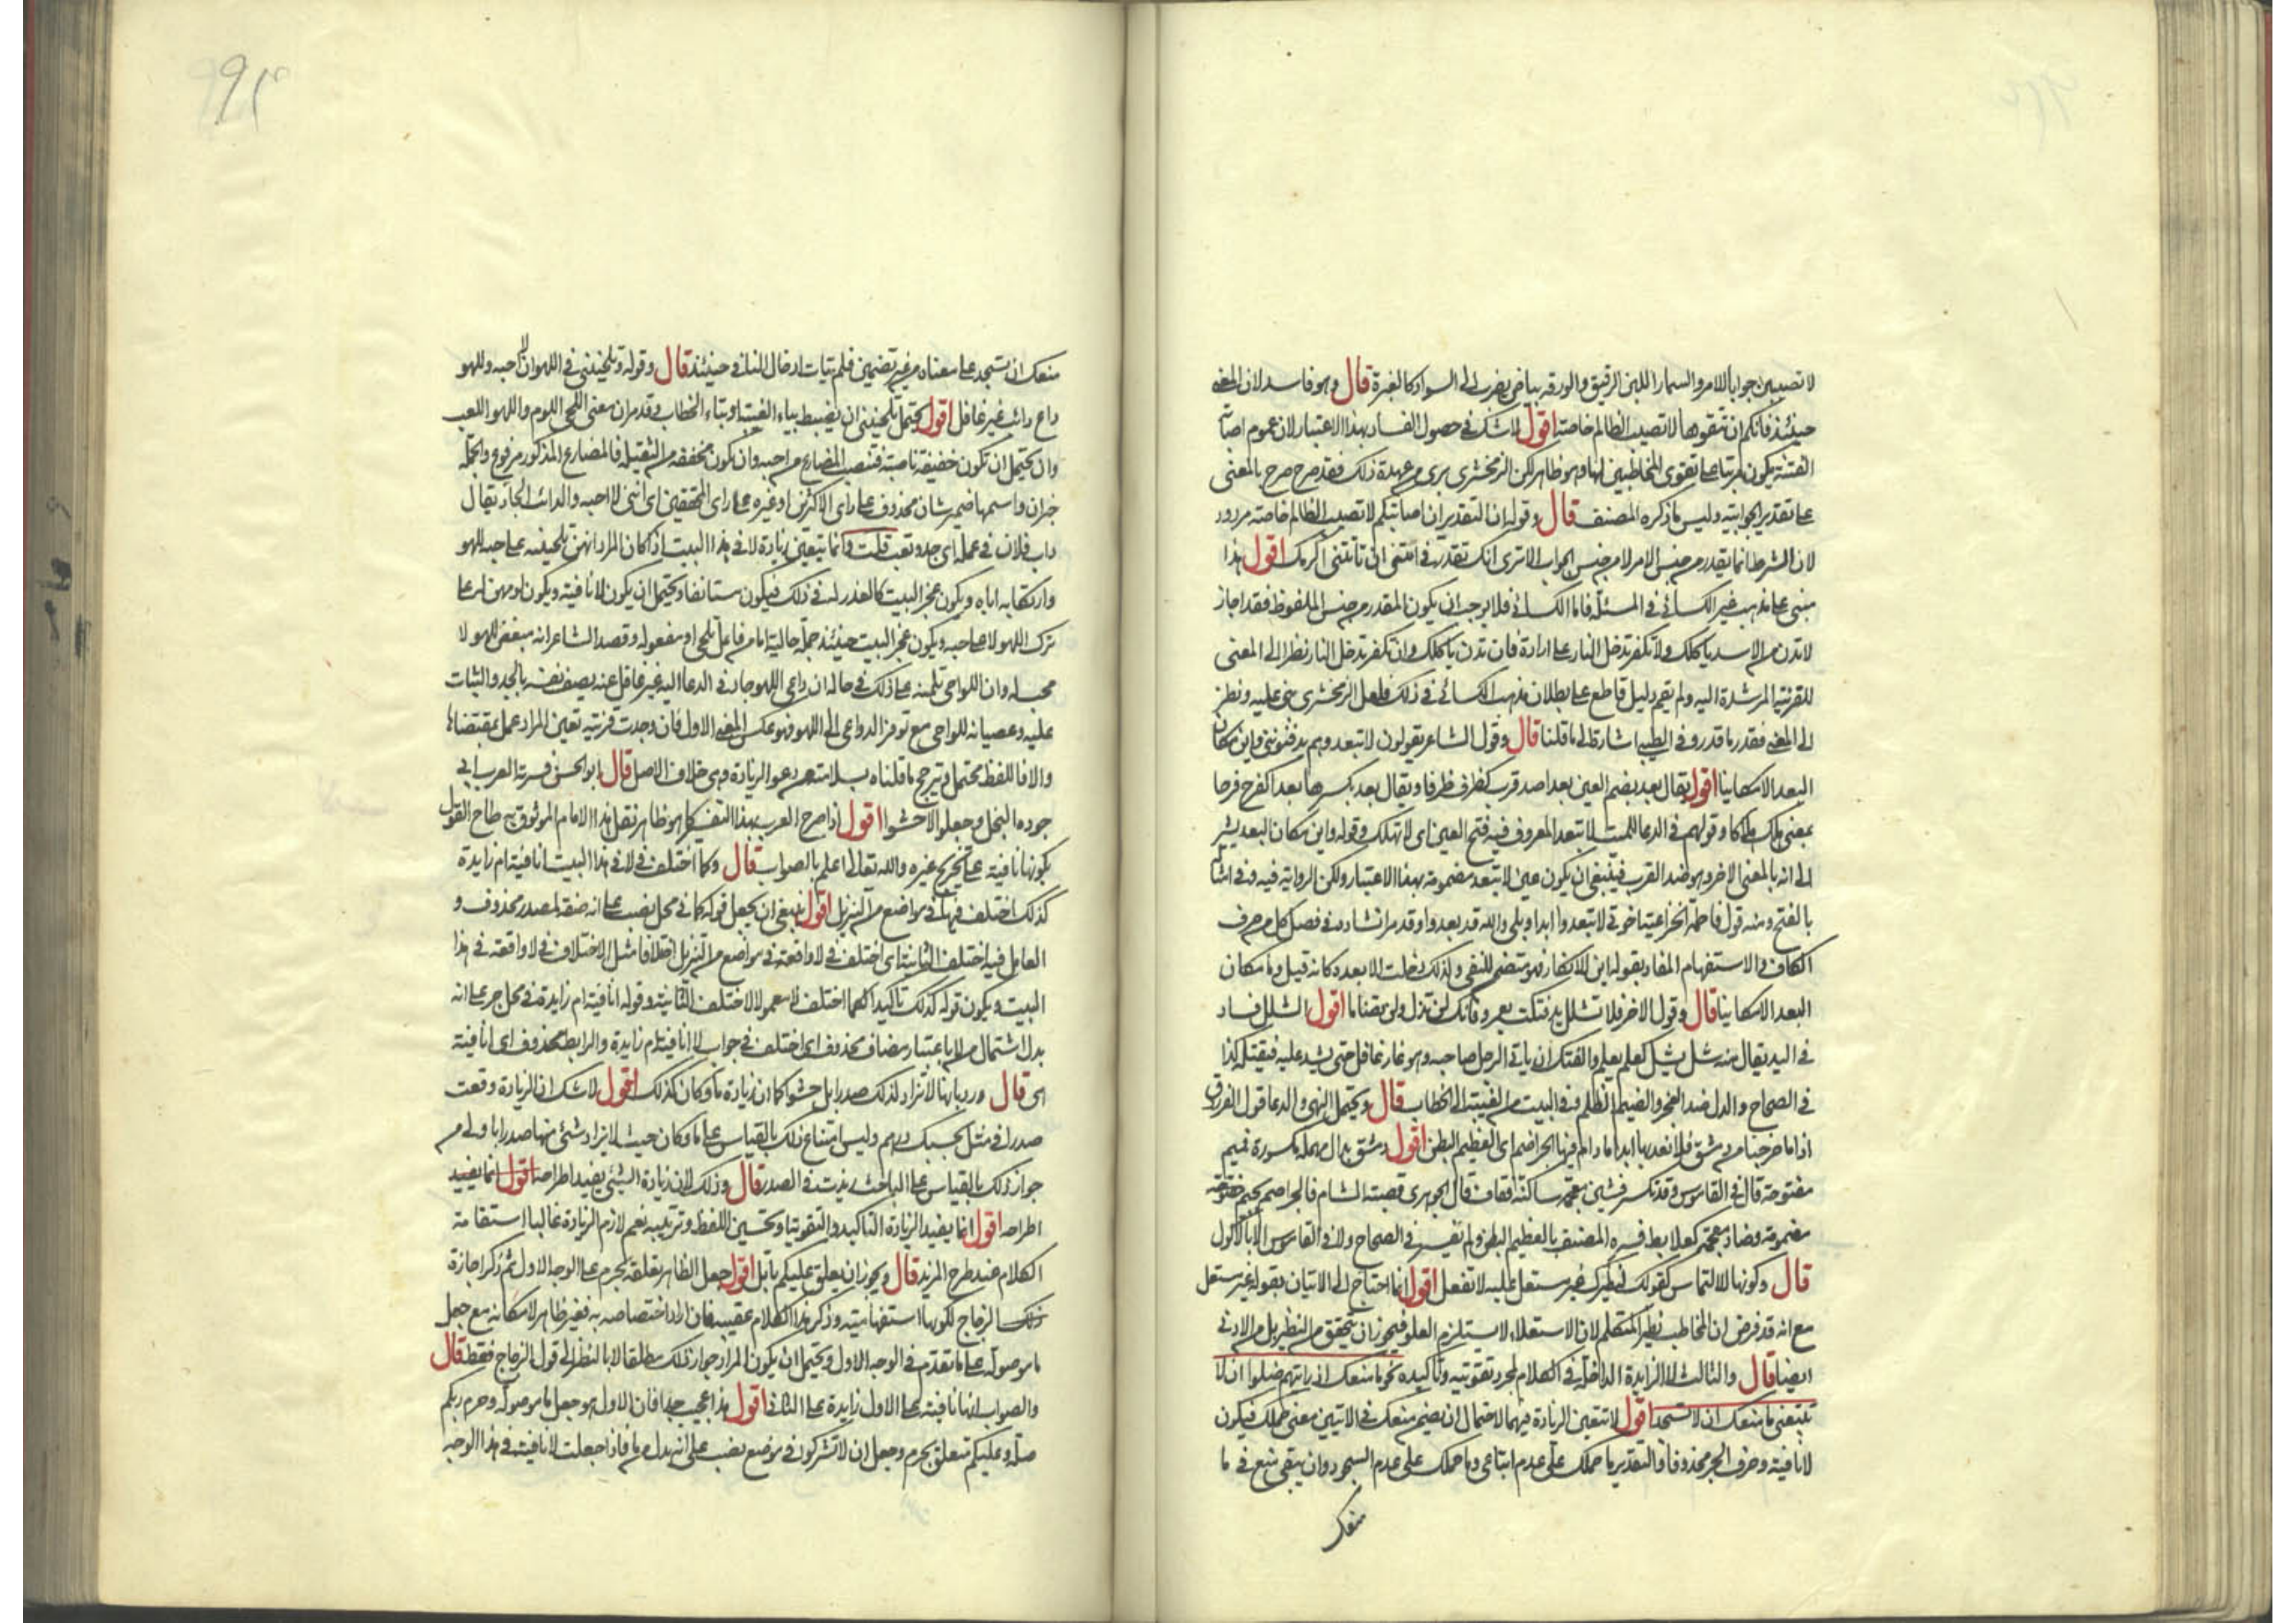 لا تصيبن جوابا للامر والسمار اللبن الرقيق والورقه بياض يضرب الى السواد كالغبرة قال وهو فاسد لان المعنى
حينئذ فانكم ان تتقوها لا تصيب الظالم خاصته اقول لا شك في حصول الفساد بهذا الاعتبار لان عموم اصابة
الفتنة يكون مرتبا على تقوى المخاطبين لها وهو ظاهر لكن الزمخشرى برى من عهدة ذلك فقد صرح بالمعنى
على تقدير الجوابية وليس ما ذكره المصنف قال وقوله ان التقدير ان اصابتكم لا تصيب الظالم خاصته مردود
لان الشرط انما يقدر من جنس الامر لا من جنس الجواب الا ترى انك تقدر في ائتنى ان تأتنى اكرمك اقول هذا
مبنى على مذهب غير الكسائى في المسئلة فاما الكسائى فلا يوجب ان يكون المقدر من جنس الملفوظ فقد اجاز
لا تدن من الاسد ياكلك ولا تكفر تدخل النار على ارادة فان تدن ياكلك وان تكفر تدخل النار نظرا الى المعنى
للقرينة المرشدة اليه ولم يقم دليل قاطع على بطلان مذهب الكسائى في ذلك فلعل الزمخشرى بنى عليه ونظر
الى المعنى فقدر ما قدر وفى الطيبى اشارة الى ما قلنا قال وقول الشاعر يقولون لا تبعد وهم يدفنوننى واين مكان
البعد الا مكانيا اقول يقال بعد بضم العين بعدا ضد قرب كظرف ظرفا ويقال بعد بكسرها بعدا كفرح فرحا
بمعنى هلك هلاكا وقولهم في الدعا للميت لا تبعد المعروف فيه فتح العين اى لا تهلك وقوله واين مكان البعد يشير
الى انه بالمعنى الاخر وهو ضد القرب فينبغى ان يكون عين لا تبعد مضمومة بهذا الاعتبار ولكن الرواية فيه وفى امثاله
بالفتح ومنه قول فاطمة الخزاعية اخوتى لا تبعدوا ابدا وبلى والله قد بعدوا وقد مر انشاده في فصل كل من حرف
الكاف والاستفهام المفاد بقوله اين للانكار فهو متضمن للنفى ولذلك دخلت الا بعده كانه قيل وما مكان
البعد الا مكانيا قال وقول الاخر فلا تشلل يد فتكت بعمرو فانك لن تذل ولن تضاما اقول الشلل فساد
في اليد يقال منه شل يشل كعلم يعلم والفتك ان ياتى الرجل صاحبه وهو غار غافل حتى يشد عليه فيقتله كذا
في الصحاح والذل ضد العز والضيم الظلم وفى البيت من الغيبة الى الخطاب قال ويحتمل النهى والدعا قول الفرزدق
اذا ما خرجنا من دمشق فلا نعد لها ابدا ما دام فيها الجراضم اى العظيم البطن اقول دمشق بدال مهملة مكسورة فميم
مفتوحة قال في القاموس وقد تكسر فشين معجمة ساكنة فقاف قال الجوهرى قصبته الشام فالجراضم بجيم
مضمومة وضاد معجمة كعلابط فسره المصنف بالعظيم البطن ولم يفسر في الصحاح ولا في القاموس الا بالاكول
قال وكونها للالتماس كقولك لنظيرك غير مستعل عليه لا تفعل اقول انما احتاج الى الاتيان بقوله غير مستعل
مع انه قد فرض ان المخاطب نظير المتكلم لان الاستعلاء لا يستلزم العلو فيجوز ان يتحقق من النظير بل من الادنى
ايضا قال والثالث لا الزايدة الداخلة في الكلام لمجرد تقويته وتأكيده نحو ما منعك اذ رايتهم ضلوا ان لا
تتبعنى ما منعك ان لا تسجد اقول لا تتعين الزيادة فيهما لاحتمال ان يضمن منعك في الايتين معنى حملك فيكون
لا نافية وحرف الجر محذوفا فالتقدير ما حملك على عدم اتباعى وما حملك على عدم السجود وان يبقى منع في ما
منعك
منعك ان تسجد على معناه من غير تضمين فلم يتات ادخال لا النافية وحينئذ قال وقوله وتلحيننى في اللهو ان لا احبه وللهو
داع دائب غير غافل اقول يحتمل تلحيننى ان يضبط بياء الغيبة او بتاء الخطاب وقد مر ان معنى اللحى اللوم واللهو اللعب
وان يحتمل ان تكون خفيفة ناصبة فتنصب المضارع من احبه وان تكون مخففة من الثقيلة فالمضارع المذكور مرفوع والجملة
خبر ان واسمها ضمير شان محذوف على راى الاكثرين او غيره على راى المحققين اى اننى لا احبه والدائب الجاد يقال
داب فلان في عمله اى جد وتعب قلت وانما يتعين زيادة لا في هذا البيت اذا كان المراد انهن تلحينه على حبه للهو
وارتكابه اياه ويكون عجز البيت كالعذر له في ذلك فيكون مستانفا ويحتمل ان يكون لا نافية ويكون لومهن له على
ترك اللهو لا على حبه ويكون عجز البيت حينئذ جملة حالية اما من فاعل تلحى او مفعوله وقصد الشاعر انه مبغض للهو لا
محب له وان اللواحى تلمنه على ذلك في حالة ان داعى اللهو جاد في الدعا اليه غير غافل عنه يصف نفسه بالجد والثبات
عليه وعصيانه للواحى مع توفر الدواعى الى اللهو فهو عكس المعنى الاول فان وجدت قرينة تعين المراد عمل بمقتضاها
والا فاللفظ محتمل ويترجح ما قلناه بسلامته من دعوا الزيادة وهى خلاف الاصل قال ابو الحسن فسرته العرب ابى
جوده البخل وجعلوا لا حشوا اقول اذا صرح العرب بهذا التفسير كما هو ظاهر نقل هذا الامام الموثوق به طاح القول
بكونها نافية على تخريج غيره والله تعالى اعلم بالصواب قال وكما اختلف في لا في هذا البيت انافية ام زايدة
كذلك اختلف فيها في مواضع من التنزيل اقول ينبغى ان يجعل قوله كما في محل نصب على انه صفة لمصدر محذوف و
العامل فيه اختلف الثانية اى اختلف في لا واقعة في مواضع من التنزيل اختلافا مثل الاختلاف في لا واقعة في هذا
البيت ويكون قوله كذلك تاكيدا لكما اختلف لا معمولا لاختلف الثانية وقوله انافية ام زايدة في محل جر على انه
بدل اشتمال من لا باعتبار مضاف محذوف اى اختلف في جواب لا انافية ام زايدة والرابط محذوف اى انافية
هى قال ورد بانها لا تزاد لذلك صدرا بل حشوا كما ان زيادة ما وكان كذلك اقول لا شك ان الزيادة وقعت
صدرا في مثل بحسبك درهم وليس امتناع ذلك بالقياس على ما وكان حيث لا يزاد شئ منها صدرا باولى من
جواز ذلك بالقياس على الباحث زيدت في الصدر قال وذلك لان زيادة الشئ يفيد اطراحه اقول انما يفيد
اطراحه اقول انما يفيد الزيادة التاكيد والتقوية وتحسين اللفظ وترتيبه نعم لازم الزيادة غالبا استقامة
الكلام عند طرح المزيد قال ويجوز ان يعلق عليكم باتل اقول جعل الظاهر تعلقه بحرم على الوجه الاول ثم ذكر اجازة
ذلك الزجاج لكونها استفهامية وذكر هذا الكلام عقيبه فان اراد اختصاصه به فغير ظاهر لامكانه مع جعل
ما موصولة على ما تقدم في الوجه الاول ويحتمل ان يكون المراد جواز ذلك مطلقا لا بالنظر الى قول الزجاج فقط قال
والصواب انها نافية على الاول زايدة على الثانى اقول هذا عجيب جدا فان الاول هو جعل ما موصولة وحرم ربكم
صلة وعليكم متعلق بحرم وجعل ان لا تشركون في موضع نصب على انه بدل من ما فاذا جعلت لا نافية في هذا الوجه